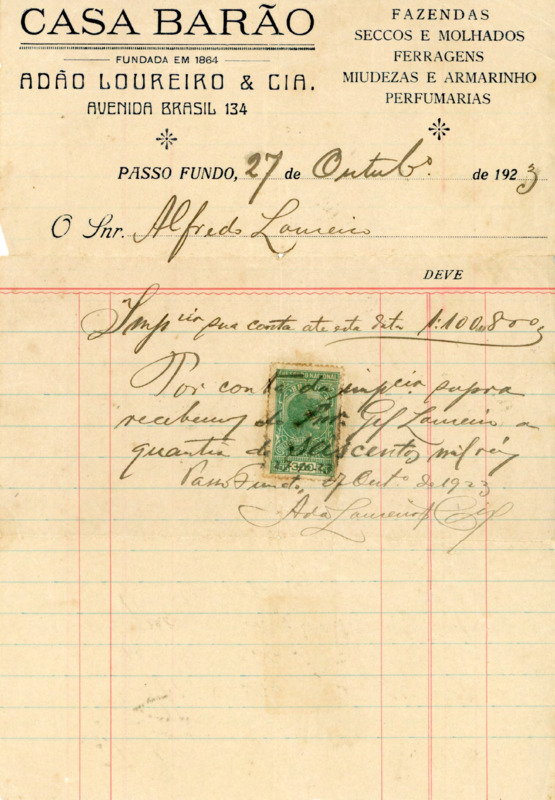 CASA BARÃO
FUNDADA EM 1864
ADÃO LOUREIRO & CIA.
AVENIDA BRASIL 134
FAZENDAS
SECCOS E MOLHADOS
FERRAGENS
MIUDEZAS E ARMARINHO
PERFUMARIAS
PASSO FUNDO, 27 de Outubº. de 1923
O Snr. Alfredo Loureiro
DEVE
Impcia sua conta até esta data 1:100$800
Por conta da impcia. supra
recebemos do Snr. Loureiro a
quantia de seiscentos mil réis
Passo Fundo, 27 Outº. de 1923
Adão Loureiro & Cia
THESOURO NACIONAL
300